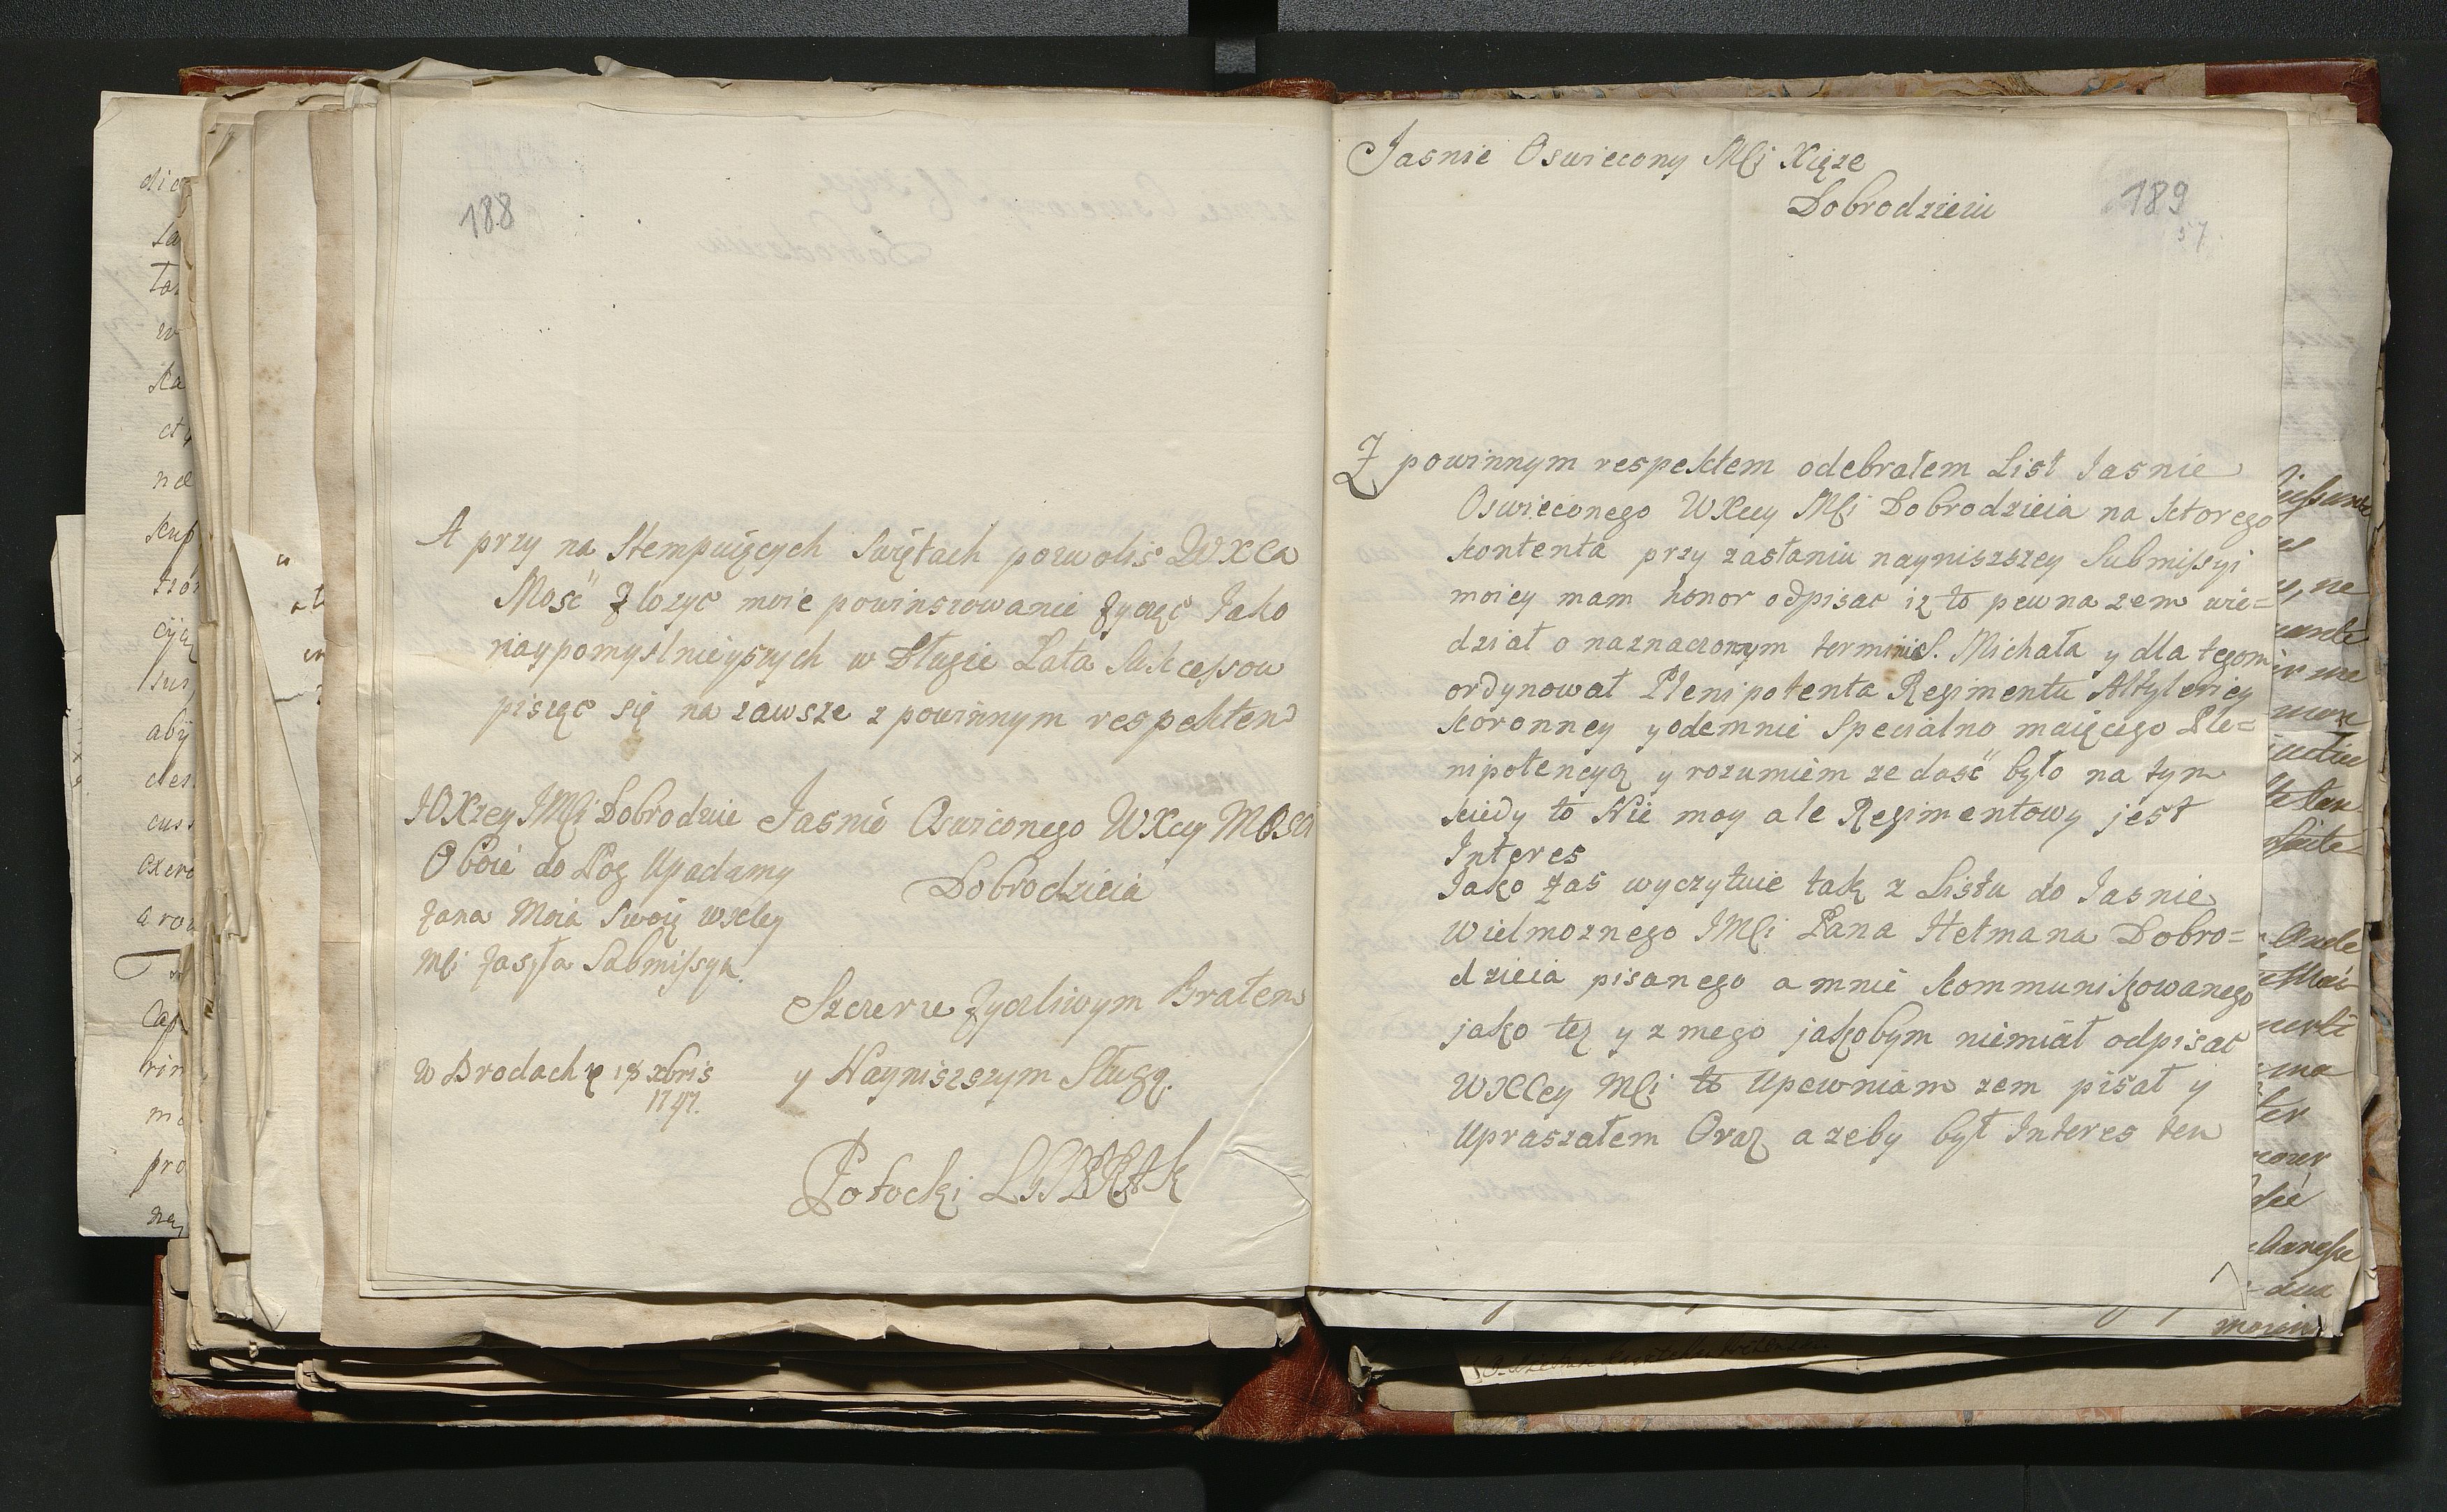 188
A przy na Stempuiących Swiętach pozwolis WXCa
Mosć Złozyć moie powinszowanie Zycząć Jako
naypomyslnieyszych w Długie Lata Sukcessow
pisząć się na zawsze z powinnym respektem
JOXzey JMSi Dobrodzie
Oboie do Nog Upadamy
Zona Moia Swoią WXCey
MSi Zasyła Submissyą.
Jasnié Oswieconego WXcey MOSCi
Dobrodzieia
Szczerze Zyczliwym Bratem
y Nayniszszym Sługą.
w Brodach 18 xbris
1747.
Potocki
Jasnie Oswiecony MSi Xiąze
Dobrodzieiu
189
57
Z powinnym respektem odebrałem List Jasnie
Oswieconego WXcey MSi Dobrodzieia na ktorego
kontenta przy zasłaniu nayniszszey Submissyi
moiey mam honor odpisac iz to pewna zem wie=
dział o naznaczonym terminie S. Michała y dla tegom
ordynował Plenipotenta Regimentu Altyleriey
Koronney y odemnie Specialno maiącego Ple=
nipotencyą y rozumiem ze dosć było na tym
kiedy to Nie moy ale Regimentowy jest
Interes
Jako Zas wyczytuie tak z Listu do Jasnie
Wielmoznego JMSi Pana Hetmana Dobro=
dzieia pisanego a mnie kommunikowanego
jako tez y z mego jakobym niemiał odpisac
WXCey MSi to Upewniam zem pisał y
Upraszałem Oraz azeby był Interes ten